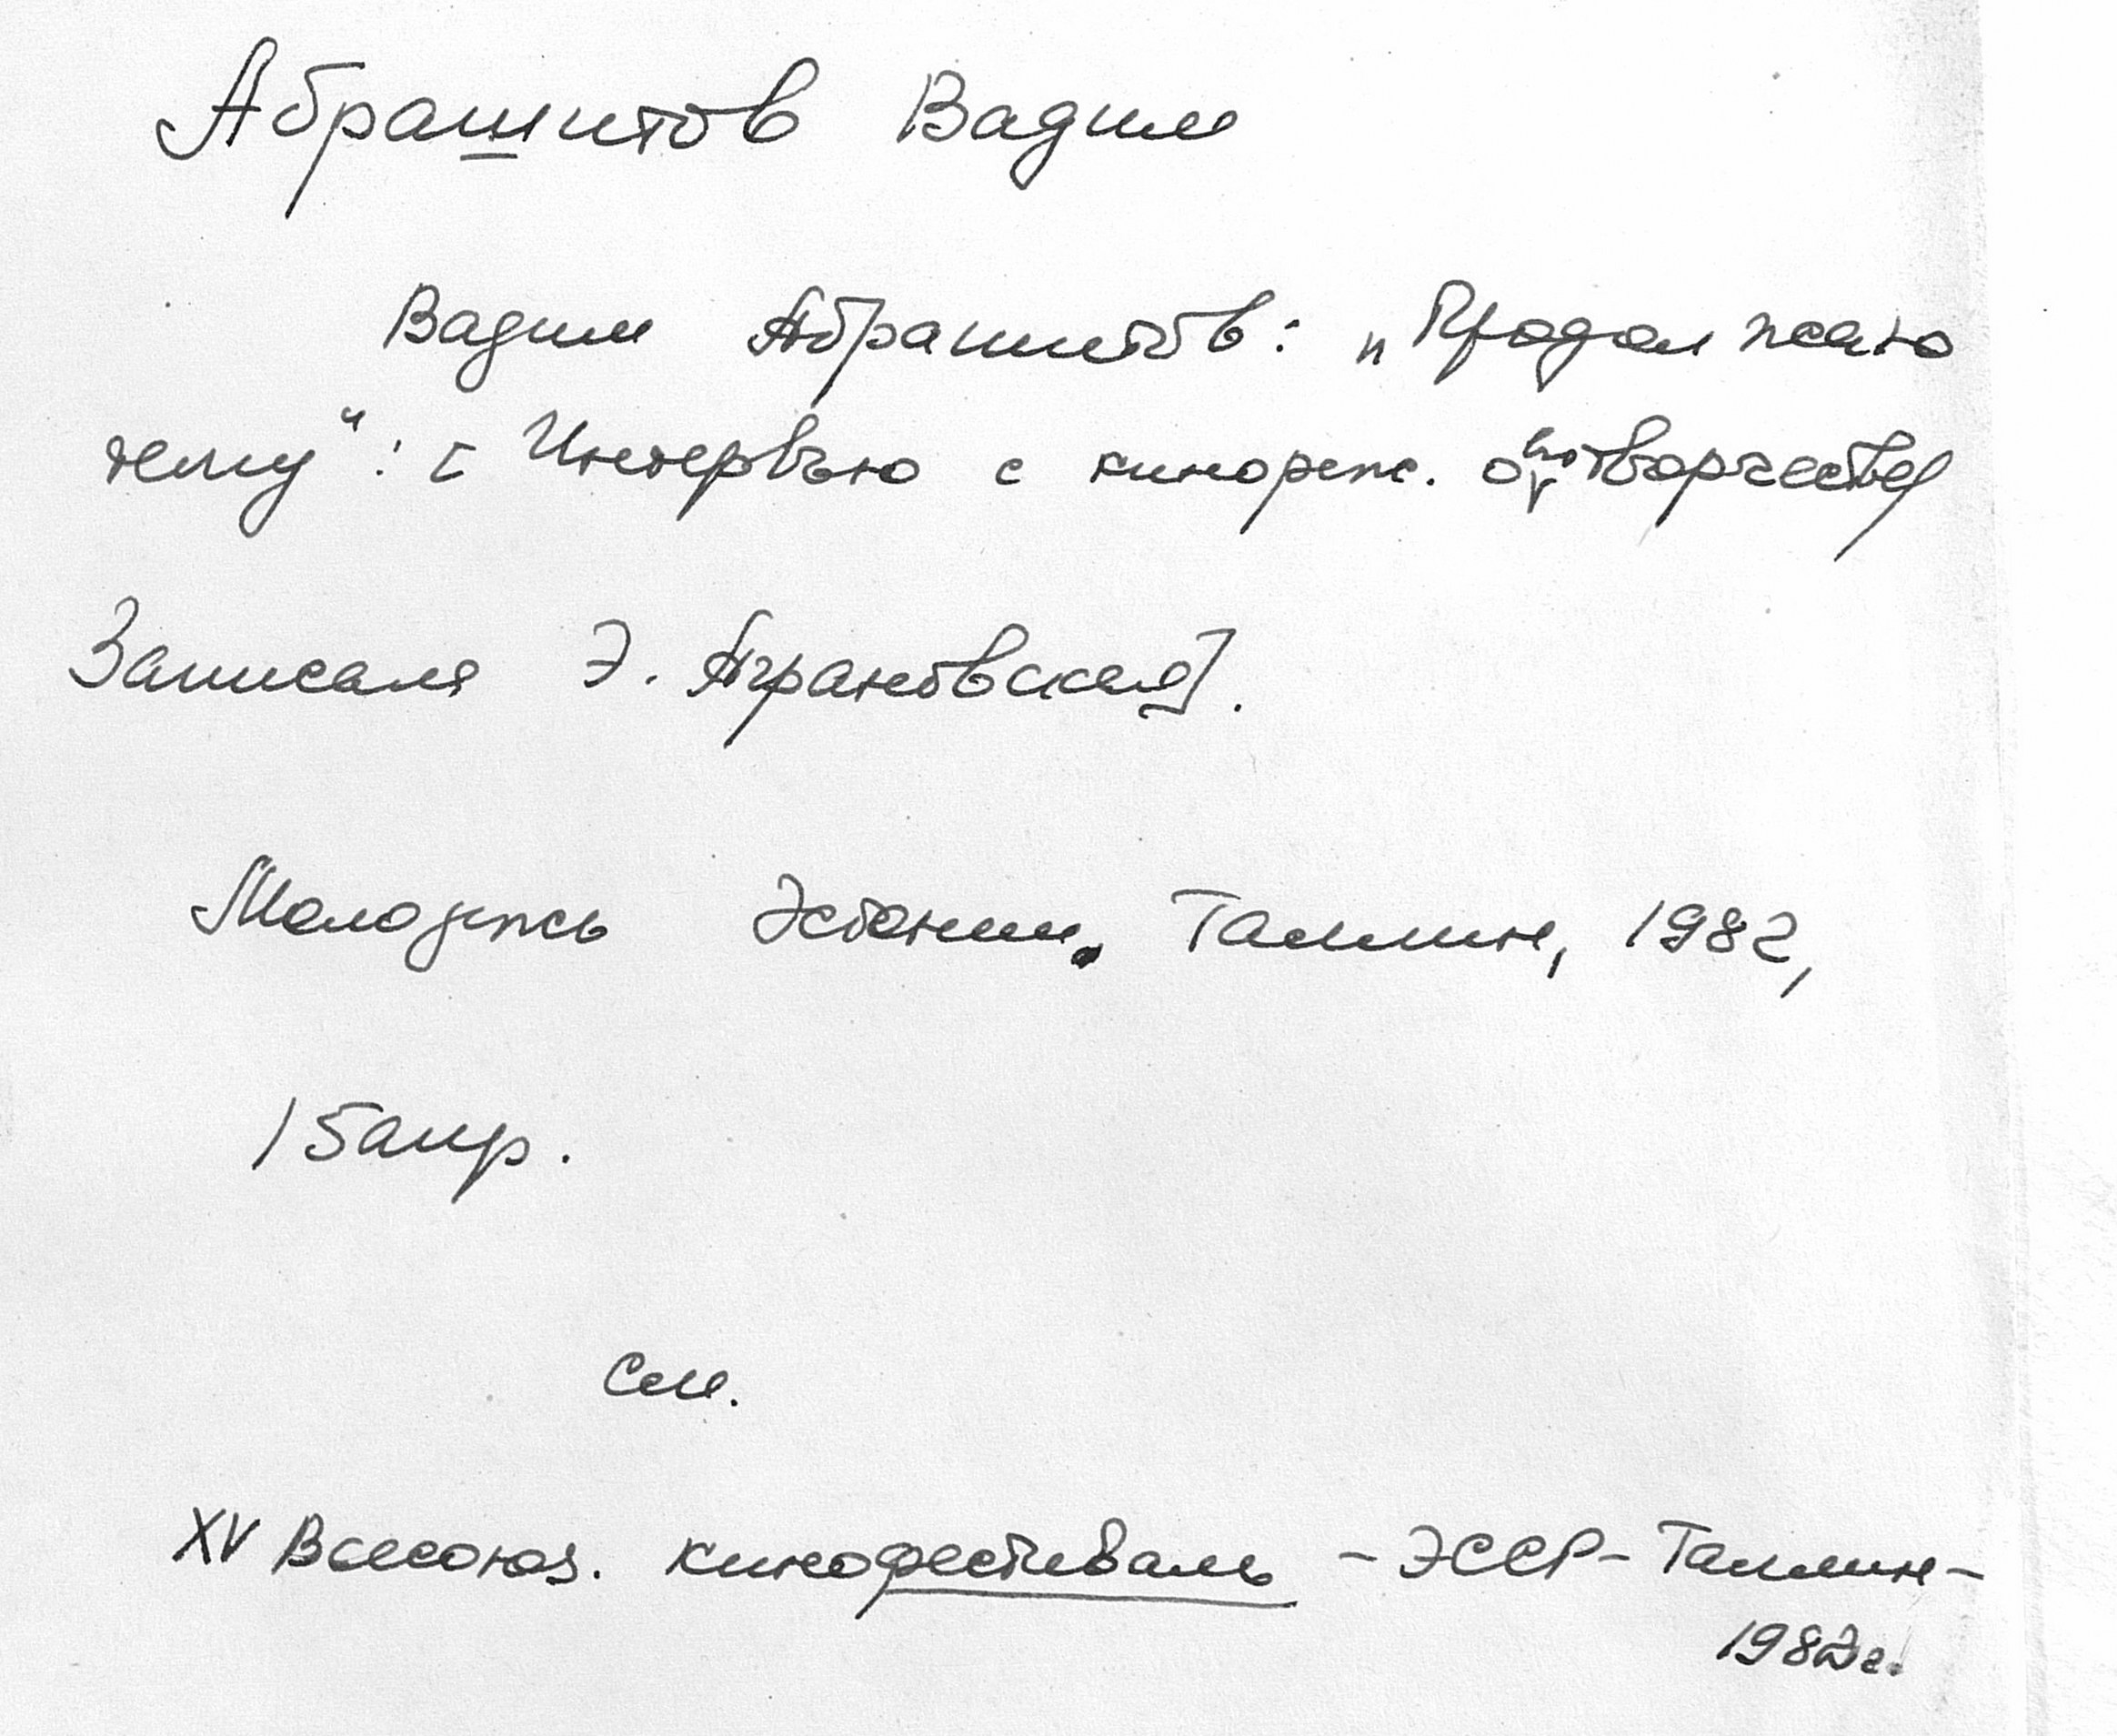 Абрашитов Вадим
Вадим Абрашитов: „Продолжаю
тему“: [Интервью с кинореж. о его творчестве
Записала Э. Аграновская].
Молодежь Эстонии, Таллин, 1982,
15 апр.
См.
XV Всесоюз. кинофестиваль - ЭССР - Таллин -
1982 г.